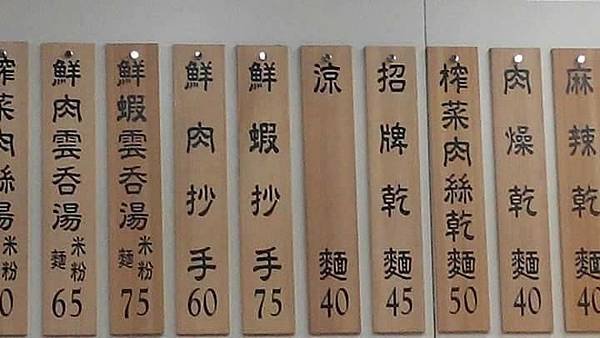 麻辣乾麵
40
肉燥乾麵
40
榨菜肉絲乾麵
50
招牌乾麵
45
涼麵
40
鮮蝦抄手
75
鮮肉抄手
60
鮮蝦雲吞湯
米粉
麵
75
鮮肉雲吞湯
米粉
麵
65
榨菜肉絲湯
米粉
0